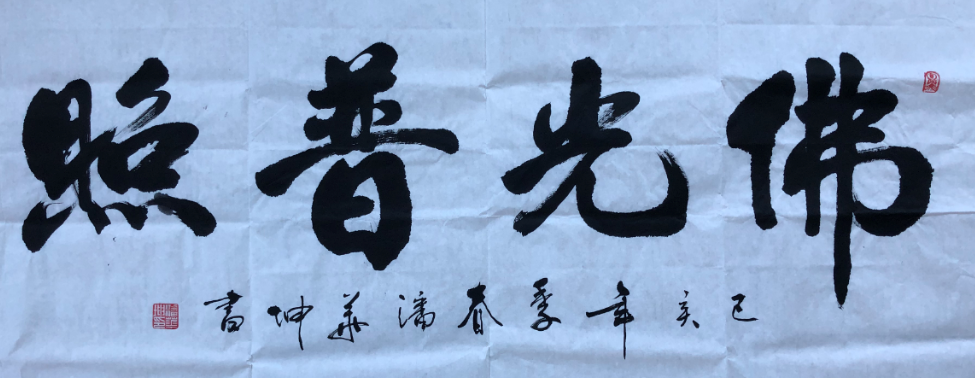 佛光普照
己亥年季春潘華坤書